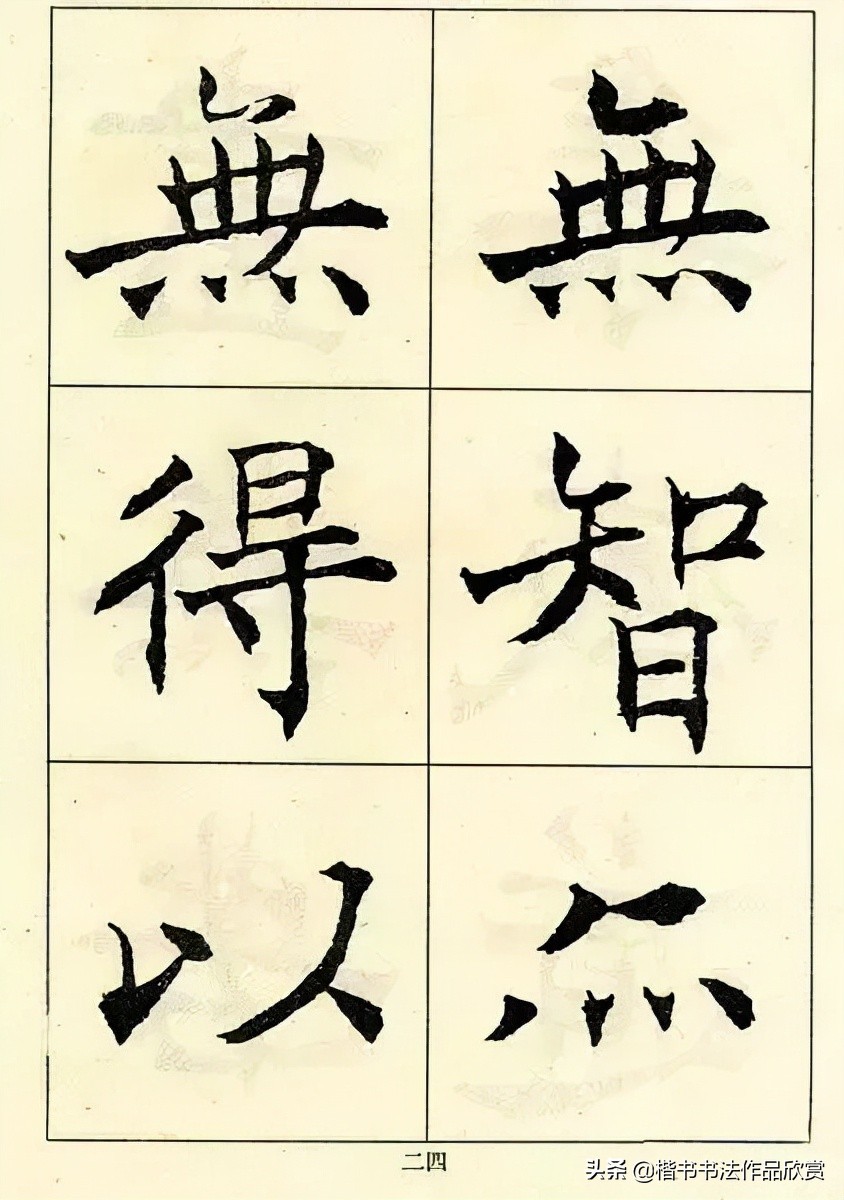 無智亦
無得以
二四
头条 @楷书书法作品欣赏